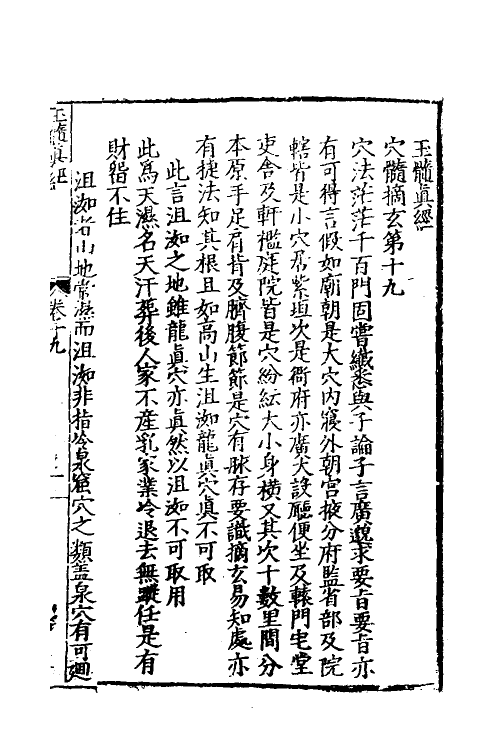 玉髓眞經
穴髓摘玄第十九
穴法茫茫千百門固嘗纖悉與子論子言廣邈求要旨要旨亦
有可得言假如廟朝是大穴内寢外朝宮掖分府監省部及院
轄皆是小穴居紫垣次是衙府亦廣大設廳便坐及轅門宅堂
吏舍及軒檻庭院皆是穴紛紜大小身橫又其次十數里間分
本原手足肩背及臍腹節節是穴有脉存要識摘玄易知處亦
有捷法知其根且如高山生沮洳龍眞穴眞不可取
此言沮洳之地雖龍眞穴亦眞然以沮洳不可取用
此爲天濕名天汗葬後人家不產乳家業冷退去無蹤任是有
財留不住
沮洳者山地常濕而沮洳非指冷泉窟穴之類盖泉穴有可廻
玉髓眞經
卷十九